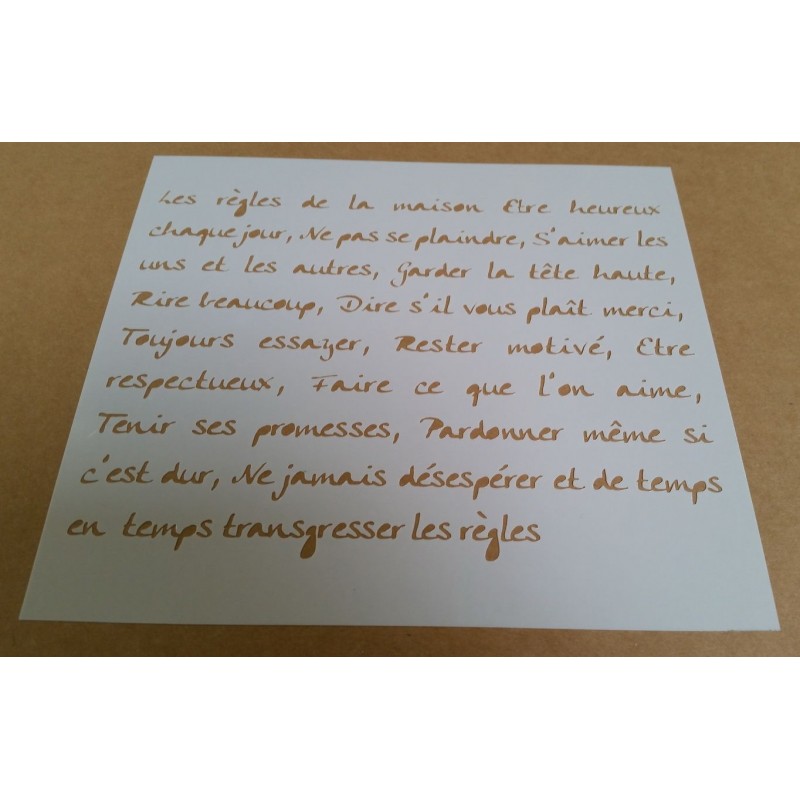 Les règles de la maison Etre heureux
chaque jour, Ne pas se plaindre, S'aimer les
uns et les autres, Garder la tête haute,
Rire beaucoup, Dire s'il vous plaît merci,
Toujours essayer, Rester motivé, Etre
respectueux, Faire ce que l'on aime,
Tenir ses promesses, Pardonner même si
c'est dur, Ne jamais désespérer et de temps
en temps transgresser les règles